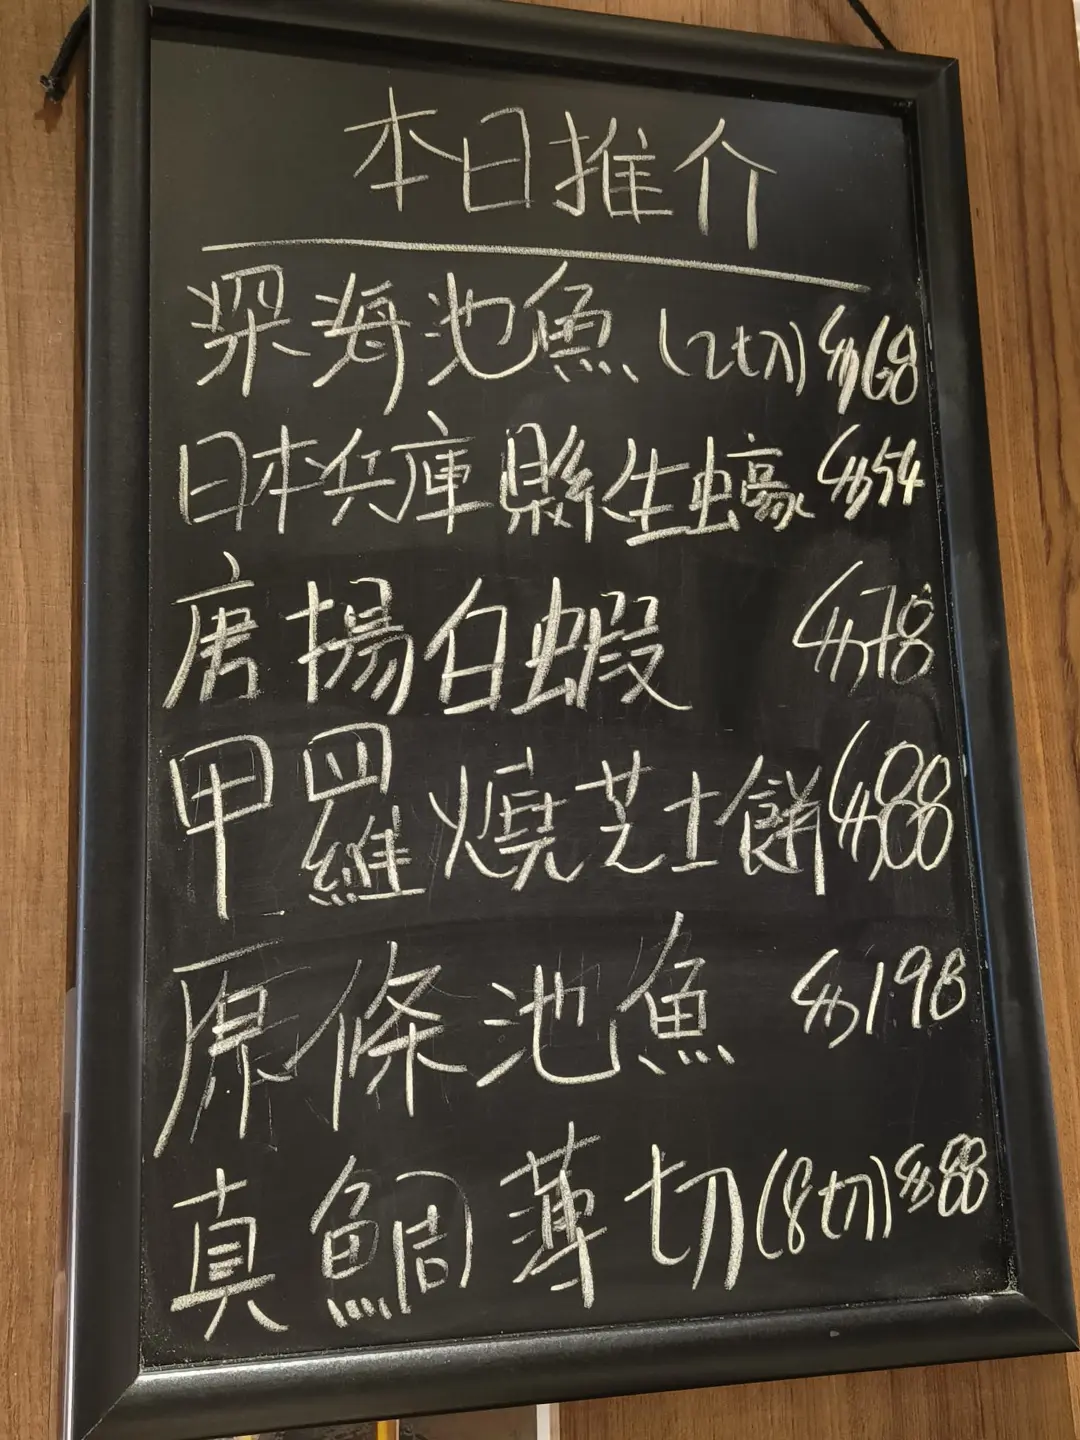 本日推介
深海池魚(2切) $68
日本兵庫縣生蠔 $54
唐揚白蝦 $78
甲羅燒芝士餅 $88
原條池魚 $198
真鯛薄切(8切) $88